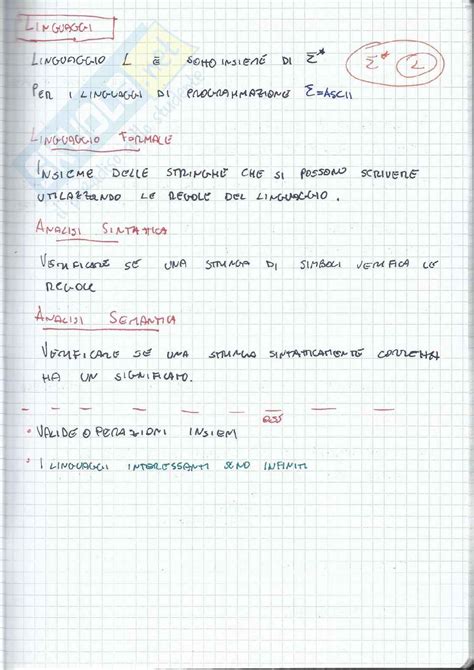 LINGUAGGI
LINGUAGGIO L È SOTTOINSIEME DI Σ*
Σ* L
PER I LINGUAGGI DI PROGRAMMAZIONE Σ=ASCII
LINGUAGGIO FORMALE
INSIEME DELLE STRINGHE CHE SI POSSONO SCRIVERE
UTILIZZANDO LE REGOLE DEL LINGUAGGIO.
ANALISI SINTATTICA
VERIFICARE SE UNA STRINGA DI SIMBOLI VERIFICA LE
REGOLE
ANALISI SEMANTICA
VERIFICARE SE UNA STRINGA SINTATTICAMENTE CORRETTA
HA UN SIGNIFICATO.
OSS
• VALIDE OPERAZIONI INSIEM
• I LINGUAGGI INTERESSANTI SONO INFINITI